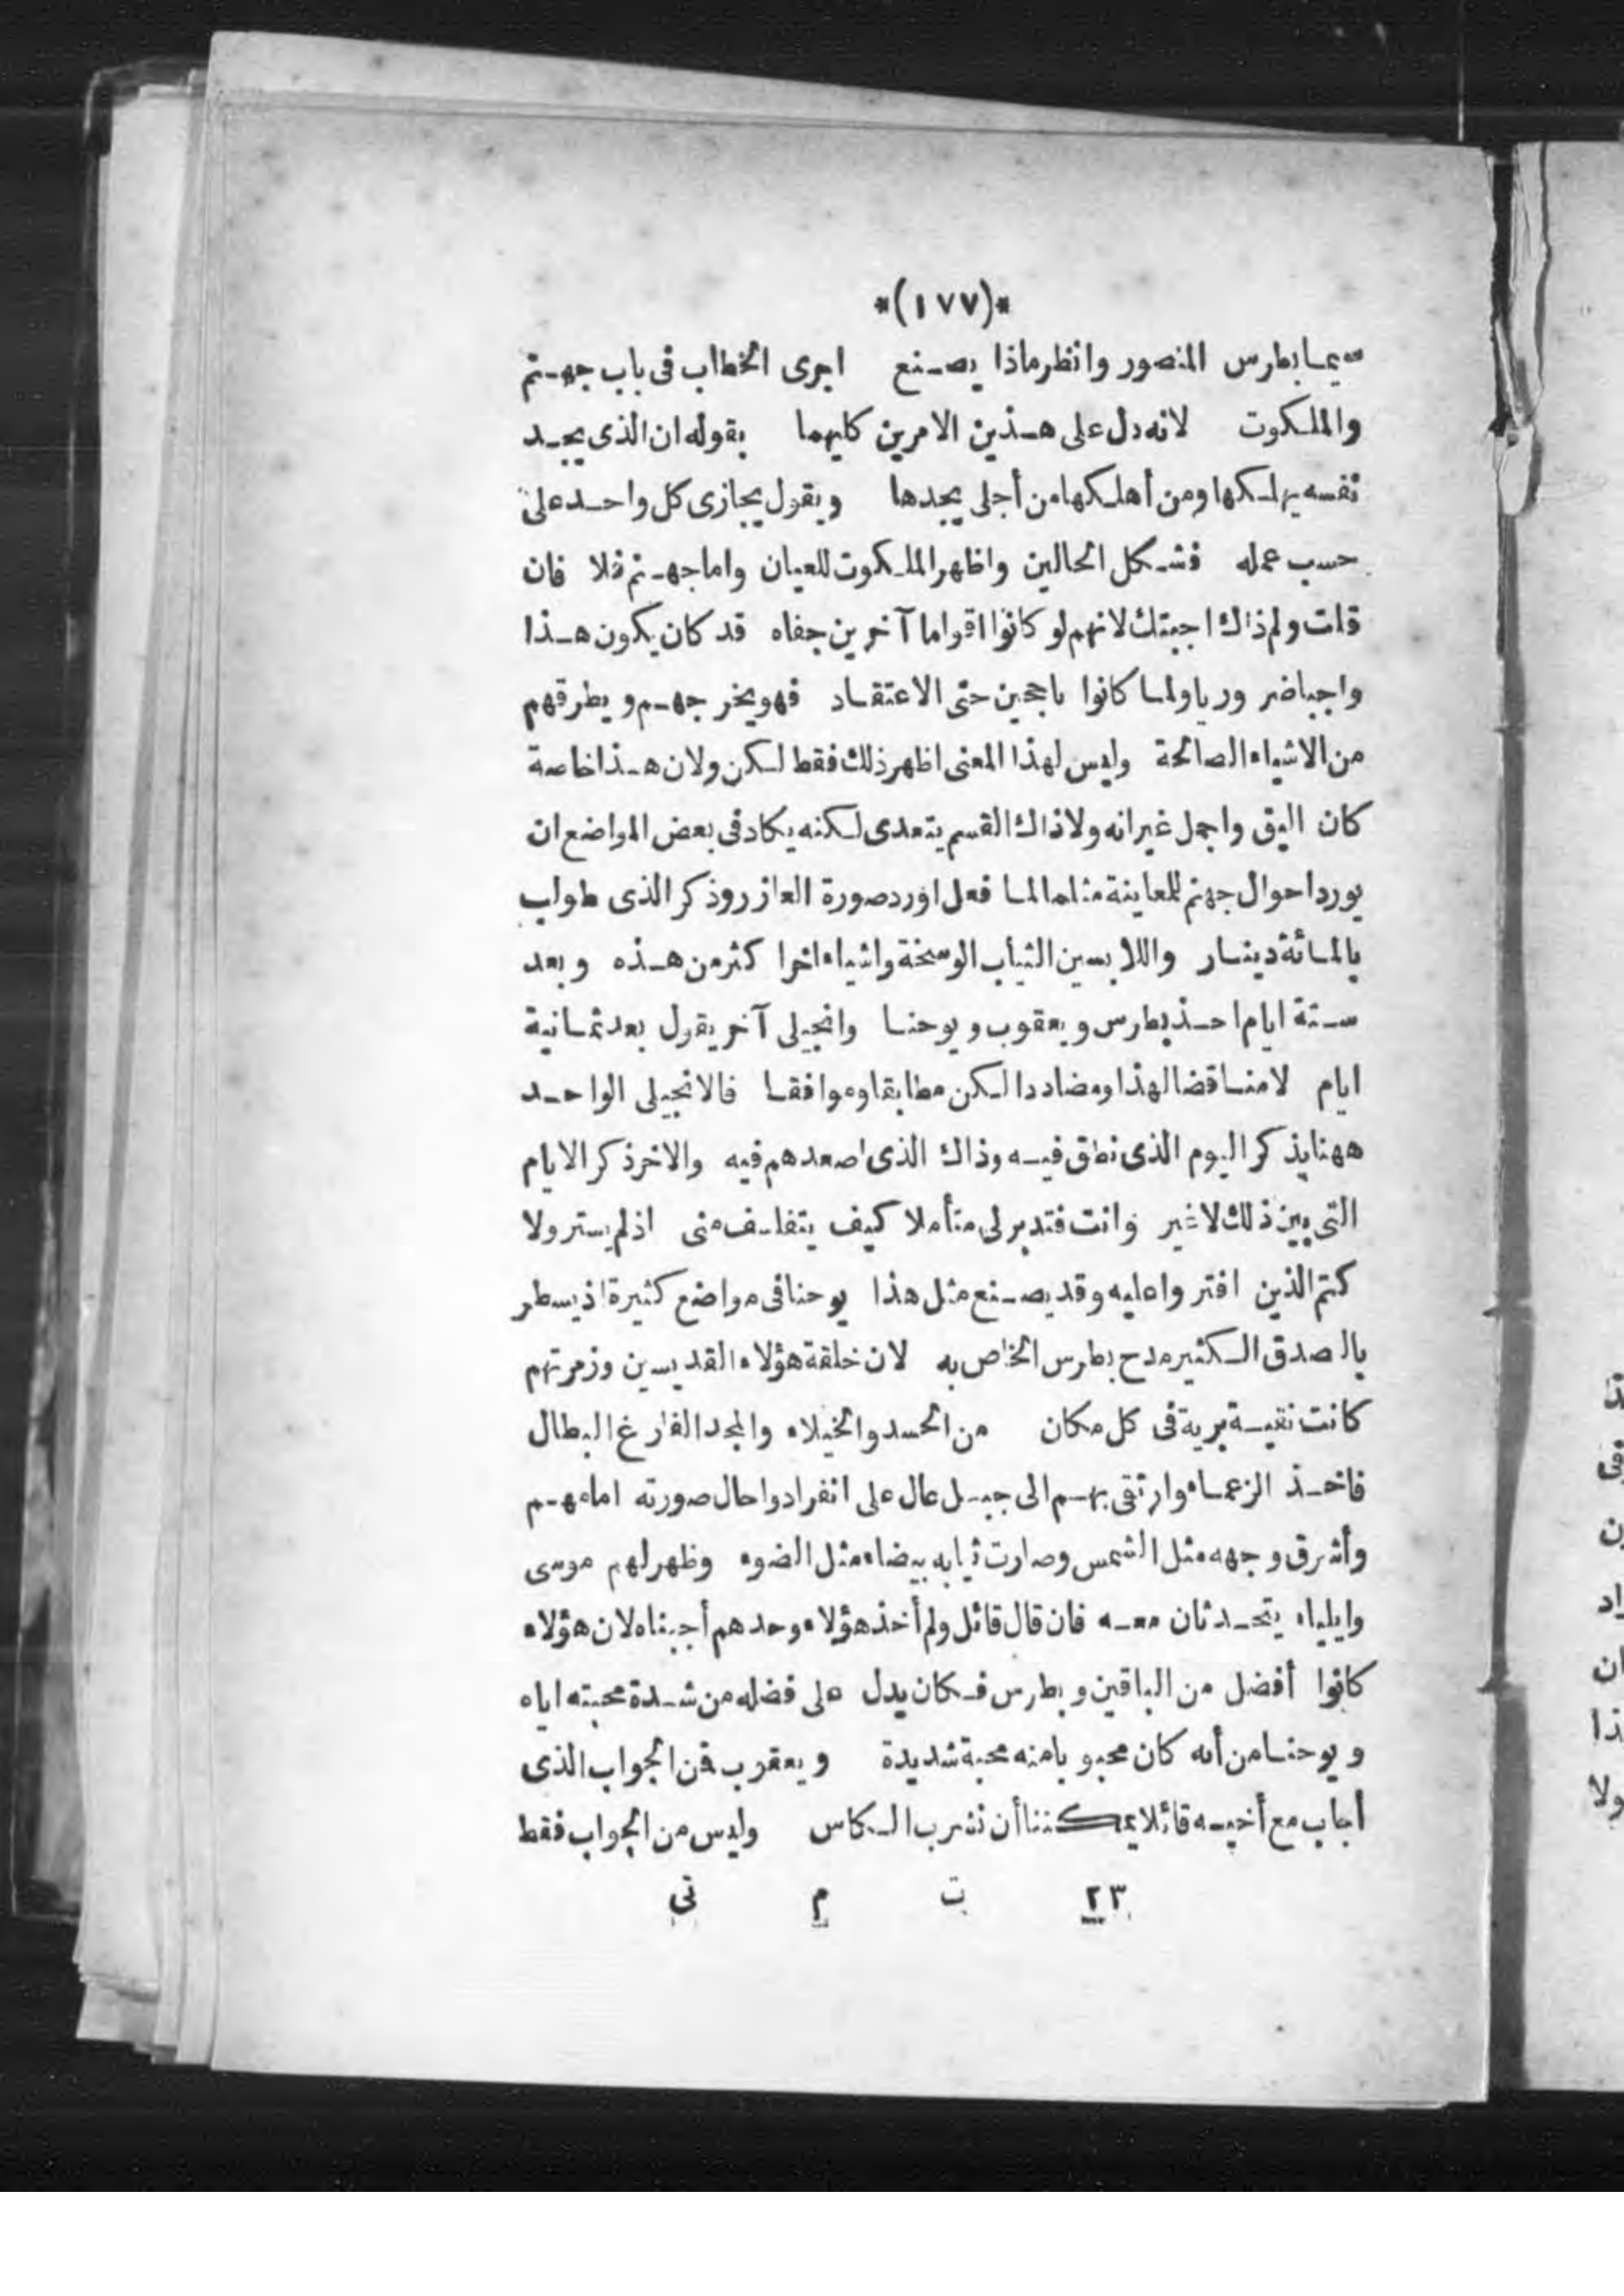 *(١٧٧)*
سيما بطرس المنصور وانظر ماذا يصنع اجرى الخطاب فى باب جهنم
والملكوت لانه دل على هذين الامرين كليهما بقوله ان الذى يجد
نفسه يهلكها ومن أهلكها من أجلى يجدها ويقول يجازى كل واحد على
حسب عمله فشكل الحالين واظهر الملكوت للعيان واما جهنم فلا فان
قلت ولم ذاك اجبتك لانهم لو كانوا اقواما آخرين جفاه قد كان يكون هذا
واجبا ضروريا ولما كانوا ناجحين حتى الاعتقاد فهو يخر جهم ويطرقهم
من الاشياء الصالحة وليس لهذا المعنى اظهر ذلك فقط لكن ولان هذا خاصة
كان اليق واجمل غيرانه ولا ذاك القسم يتعدى لكنه يكاد فى بعض المواضع ان
يورد احوال جهنم للمعاينة مثلما لما فعل اورد صورة العازر وذكر الذى طولب
بالمائة دينار واللابسين الثياب الوسخة واشياء اخرا كثر من هذه وبعد
ستة ايام احذ بطرس ويعقوب ويوحنا وانجيلى آخر يقول بعد ثمانية
ايام لا مناقضا لهذا ومضاددا لكن مطابقا وموافقا فالانجيلى الواحد
ههنا يذكر اليوم الذى نطق فيه وذاك الذى اصعدهم فيه والاخر ذكر الايام
التى بين ذلك لاغير وانت فتدبر لى متأملا كيف يتفلسف متى اذ لم يستر ولا
كتم الذين افتر واعليه وقد يصنع مثل هذا يوحنا فى مواضع كثيرة اذ يسطر
بالصدق الكثير مدح بطرس الخاص به لان خلقة هؤلاء القديسين وزمرتهم
كانت نقيسة برية فى كل مكان من الحسد والخيلاء والمجد الفارغ البطال
فاخذ الزعماء وارتقى بهم الى جبل عال على انفراد واحال صورته امامهم
وأشرق وجهه مثل الشمس وصارت ثيابه بيضاء مثل الضوء وظهر لهم موسى
وايلياء يتحدثان معه فان قال قائل ولم أخذ هؤلاء وحدهم أجبناه لان هؤلاء
كانوا أفضل من الباقين وبطرس فكان يدل على فضله من شدة محبته اياه
ويوحنا من أنه كان محبوبا منه محبة شديدة ويعقوب فمن الجواب الذى
أجاب مع أخيه قائلا يمكننا أن نشرب الكاس وليس من الجواب فقط
٢٣ ت م نى